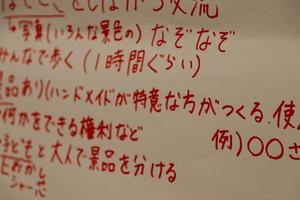 はてことしながら交流
↳写真(いろんな景色の)なぞなぞ
みんなで歩く(1時間ぐらい)
景品あり)(ハンドメイドが特意な方がつくる.使
何かをできる権利など 例)〇〇さ
子どもと大人で景品を分ける
おかし
シャー芯